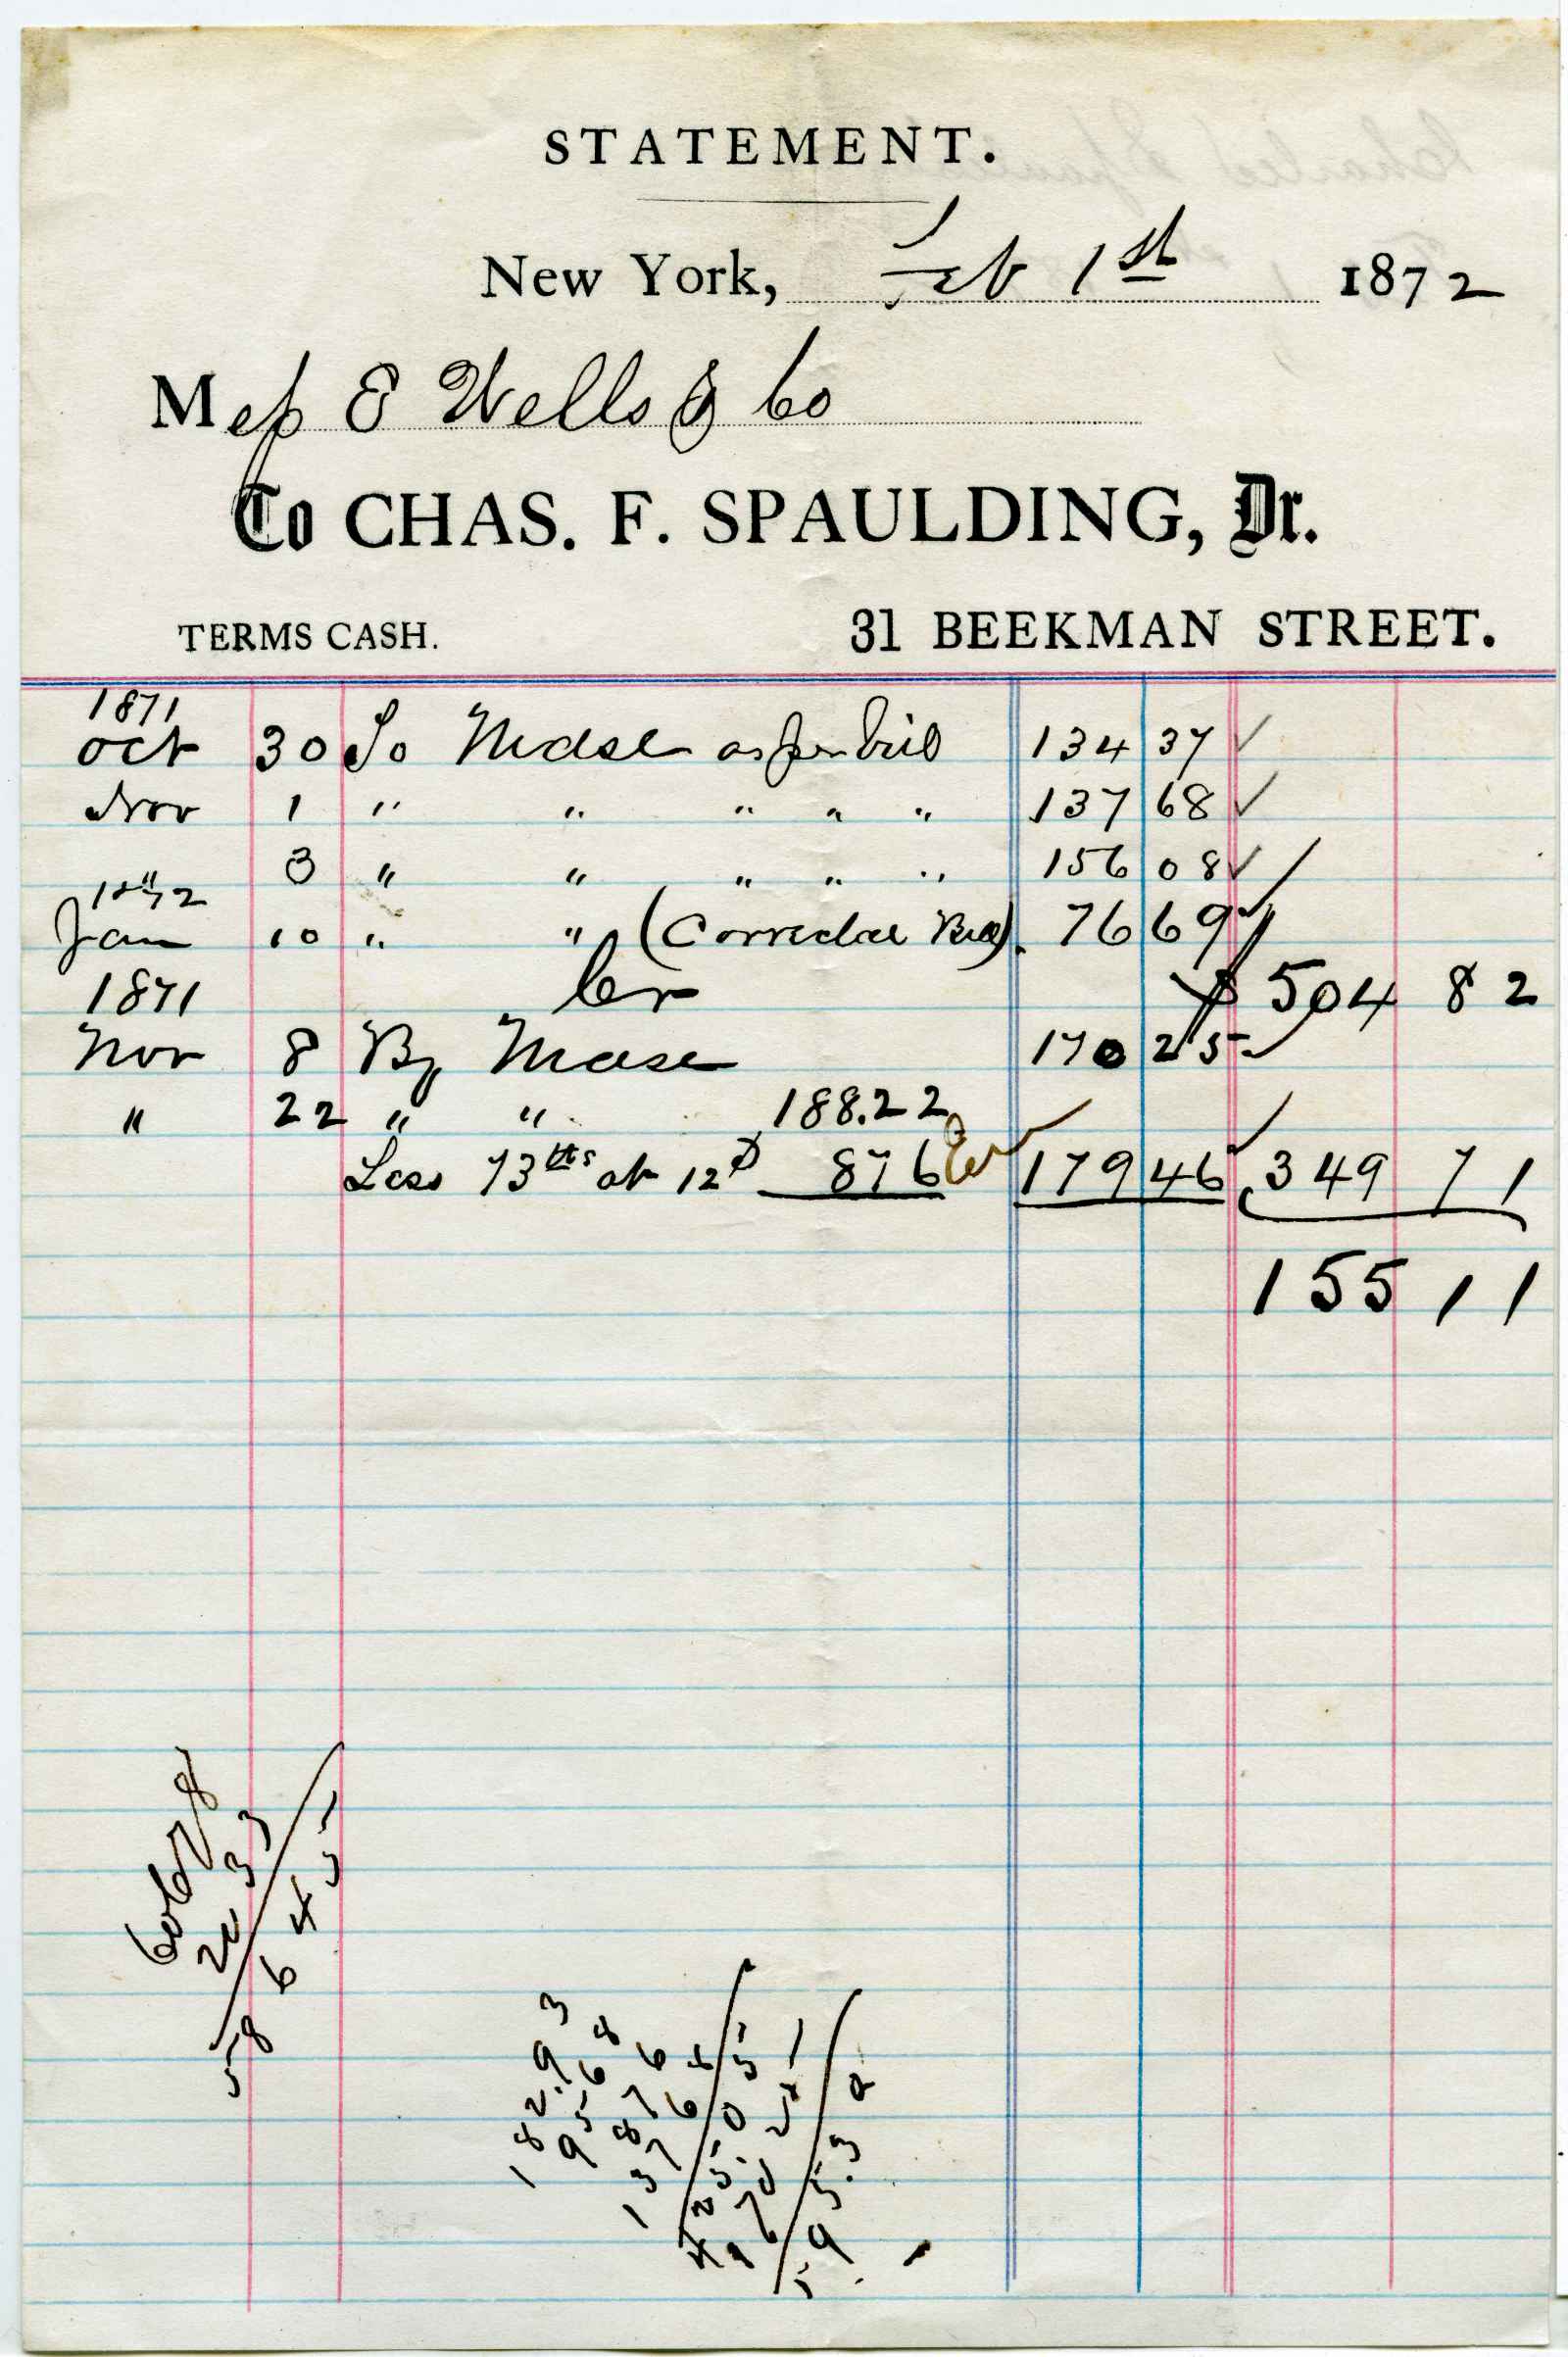 STATEMENT.
New York, Feb 1st 1872
Mess E Wells & Co
To CHAS. F. SPAULDING, Dr.
TERMS CASH. 31 BEEKMAN STREET.
1871
Oct 30 To Mdse as per bill 134 37 ✓
Nov 1 " " " " " 137 68 ✓
" 3 " " " " " 156 08 ✓
1872
Jan 10 " " (Corrected Bill) 76 69 ✓
$ 504 82
1871 Cr
Nov 8 By Mdse 170 25 ✓
" 22 " " 188.22
Less 73ths at 12¢ 8 76 179 46 349 71
155 11
606 78
20 33
586 45
182.93
95 68
8 76
137 68
425.05
595.32